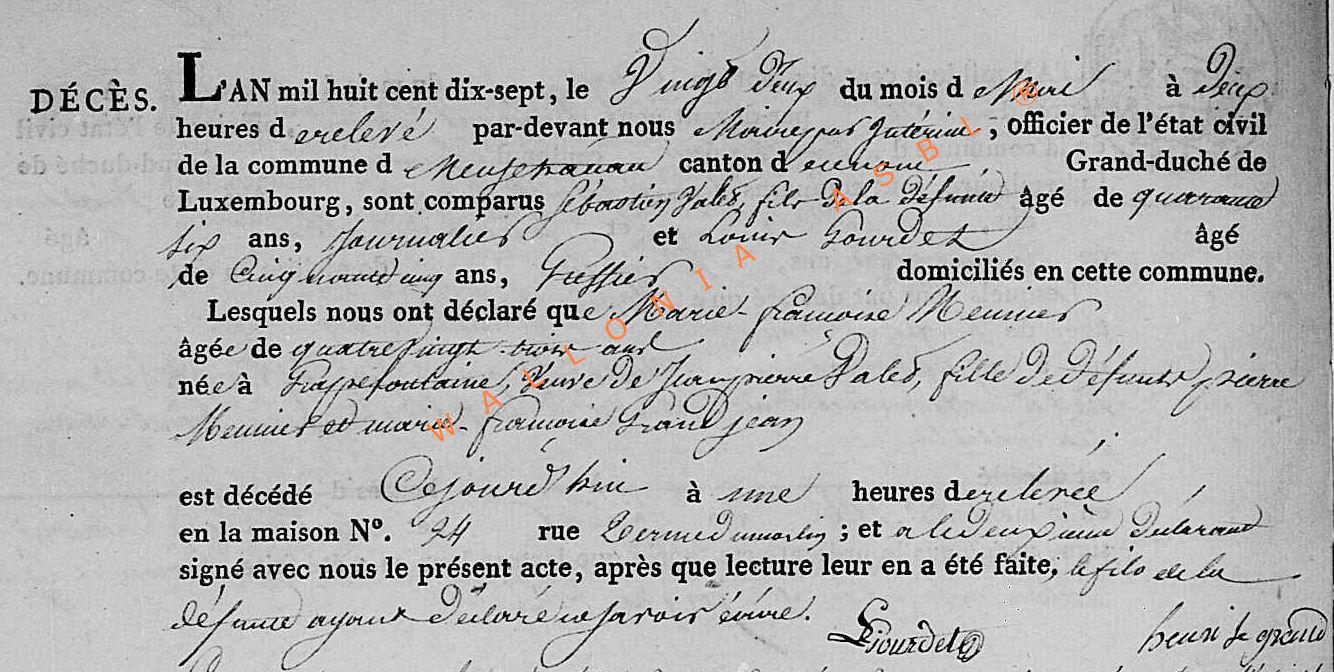 DÉCÈS. L'AN mil huit cent dix-sept, le Vingt deux du mois d avril à deux
heures d erelevé par-devant nous Maire par Intérim, officier de l'état civil
de la commune d e Neufchateau canton d eumeme Grand-duché de
Luxembourg, sont comparus Sébastien Jales, fils de la défunte âgé de quarante
six ans, Journalier et Louis Gourdet âgé
de Cinquante cinq ans, Greffier domiciliés en cette commune.
Lesquels nous ont déclaré que Marie-françoise Meunier
âgée de quatrevingt-trois ans
née à Grappefontaine, Veuve de Jean pierre Jales, fille de défunts pierre
Meunier et marie-françoise Grandjean
est décédé Cejourd'hui à une heures d erelevée
en la maison N°. 24 rue ; et a le deuxième déclarant
signé avec nous le présent acte, après que lecture leur en a été faite, le fils de la
défunte ayant déclaré ne savoir écrire.
LGourdet henri le grand
WALLONIA ASBL ®